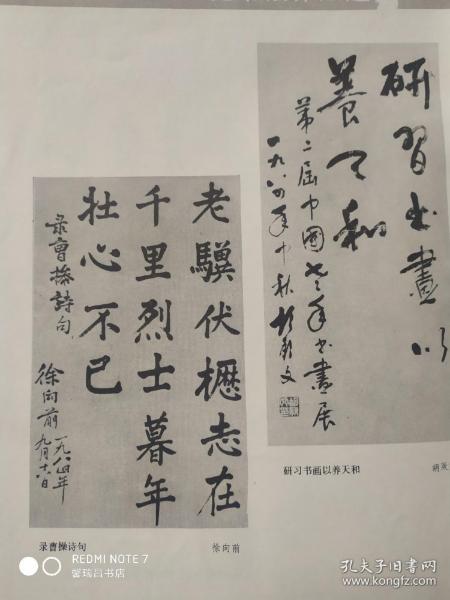 研習书畫以
養天和
第二届中國老年书畫展
一九八四年中秋 胡厥文
研习书画以养天和
胡厥
老驥伏櫪志在
千里烈士暮年
壮心不已
录曹操詩句
徐向前 一九八四年
九月十六日
录曹操诗句
徐向前
REDMI NOTE 7
馨瑞昌书店
孔夫子旧书网
www.kongfz.com